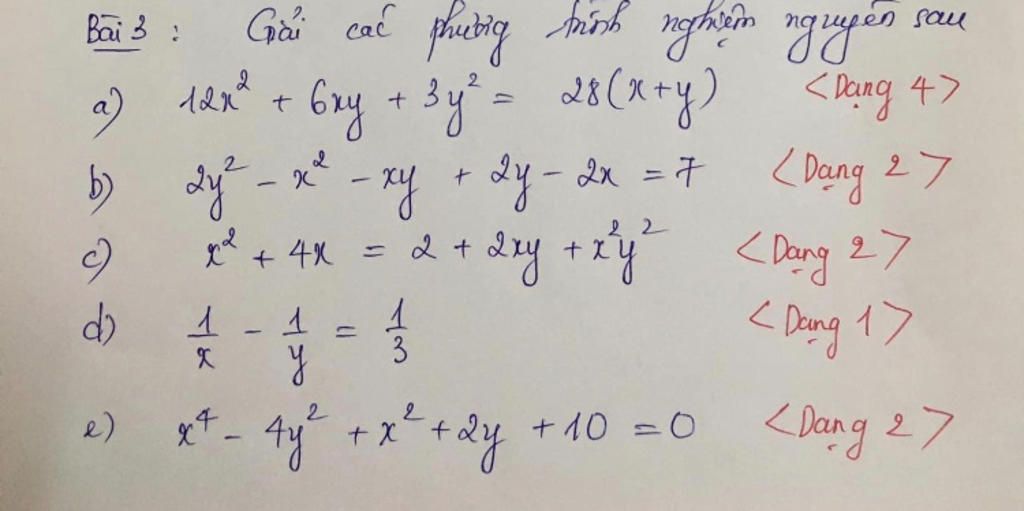 Bài 3 : Giải các phương trình nghiệm nguyên sau
a) 12x² + 6xy + 3y² = 28(x+y) <Dạng 4>
b) 2y² - x² - xy + 2y - 2x = 7 <Dạng 2>
c) x² + 4x = 2 + 2xy + x²y² <Dạng 2>
d) 1/x - 1/y = 1/3 <Dạng 1>
e) x⁴ - 4y² + x² + 2y + 10 = 0 <Dạng 2>